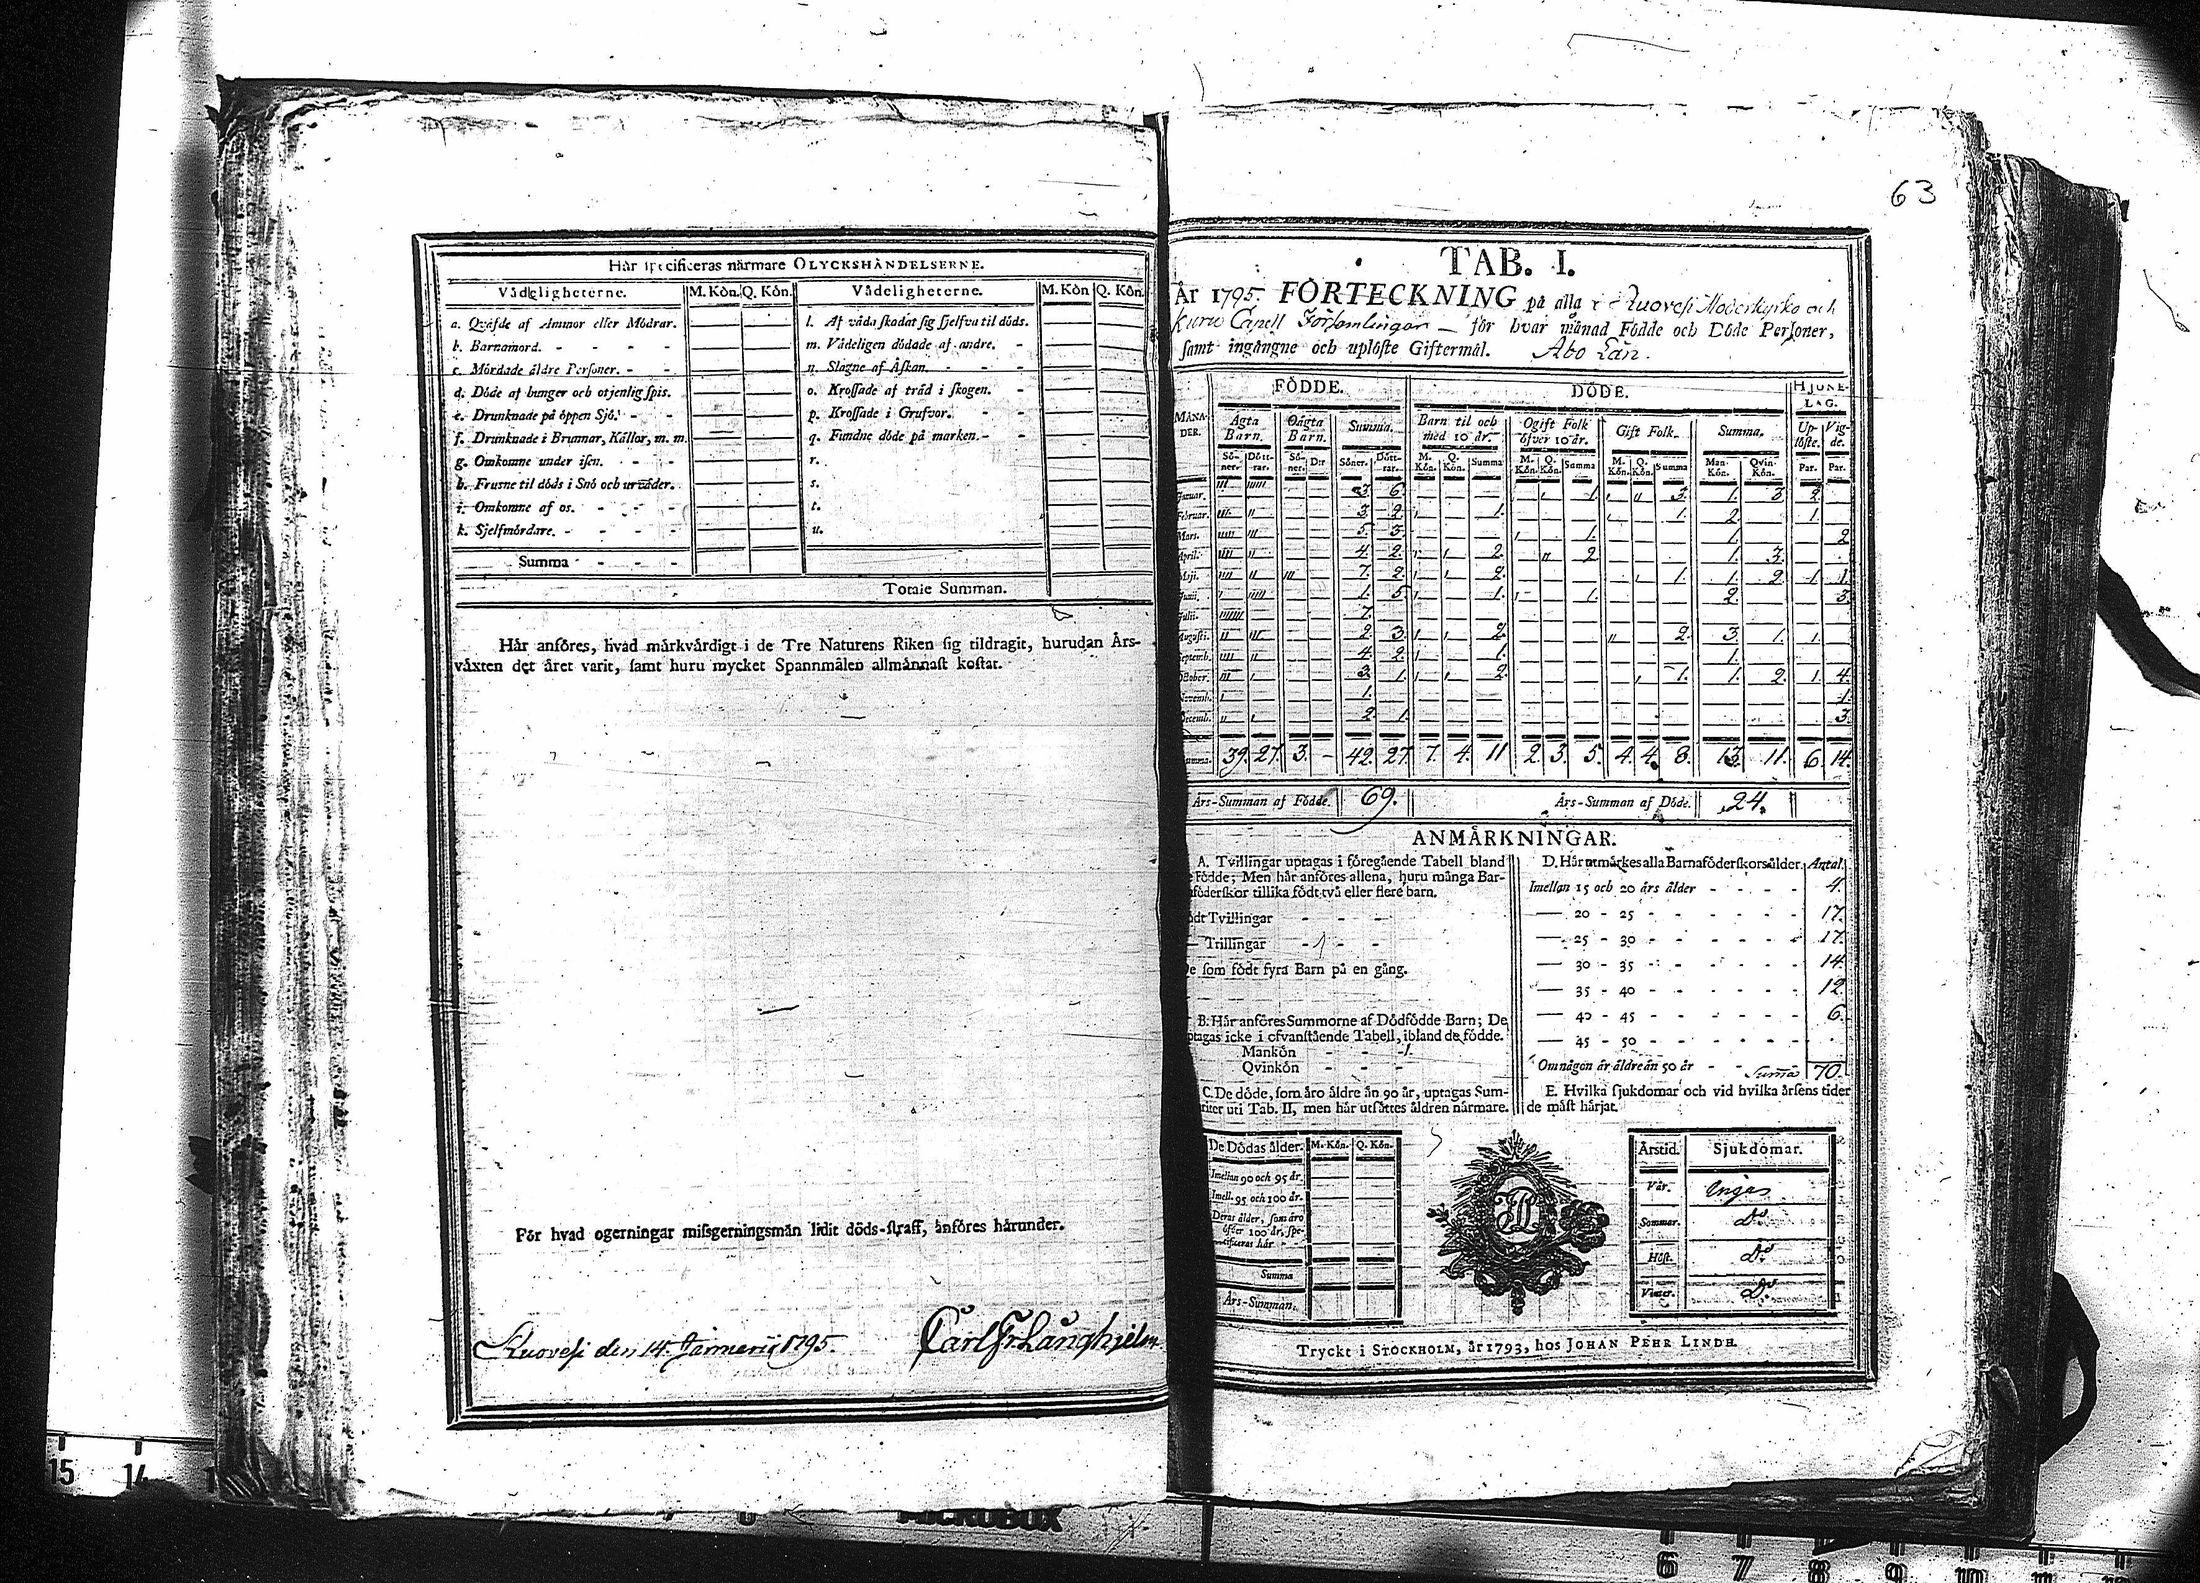 63
Hår specificeras nårmare OLYCKSHÅNDELSERNE.
Vådeligheterne. M. Kôn. Q. Kôn. Vådeligheterne. M. Kôn Q. Kôn.
a. Qvåfde af Ammor eller Môdrar. l. Af våda skadat sig sjelfva til dôds.
b. Barnamord. - - - - m. Vådeligen dôdade af andre. -
c. Môrdade åldre Personer. - - n. Slagne af Åskan. - - -
d. Dôde af hunger och otjenlig spis. o. Krossade af tråd i skogen. -
e. Drunknade på ôppen Sjô. - - p. Krossade i Grufvor. - -
f. Drunknade i Brunnar, Kållor, m. m. q. Fundne dôde på marken. - -
g. Omkomne under isen. - - - r.
h. Frusne til dôds i Snô och urvåder. s.
i. Omkomne af os. - - - - t.
k. Sjelfmôrdare. - - - - u.
Summa - - - -
Totale Summan.
Hår anfôres, hvad mårkvårdigt i de Tre Naturens Riken sig tildragit, hurudan Års-
våxten det året varit, samt huru mycket Spannmålen allmånnast kostat.
Fôr hvad ogerningar missgerningsmån lidit dôds-straff, anfôres hårunder.
Ruovesi den 14. Januarii 1795. Carl Fr. Långhjelm
TAB. I.
År 1795. FÔRTECKNING på alla i Ruovesi Moderkyrko och
Kuru Capell Församlingar — fôr hvar månad Fôdde och Dôde Personer,
samt ingångne och uplôste Giftermål. Åbo Län.
FÔDDE. DÔDE. HJONE-
LAG.
MÅNA-
DER. Ågta
Barn. Oågta
Barn. Summa. Barn til och
med 10 år. Ogift Folk
ôfver 10 år. Gift Folk. Summa. Up-
lôste. Vig-
de.
Sô-
ner. Dôtt-
rar. Sô-
ner. D:r Sôner. Dôtt-
rar. M.
Kôn. Q.
Kôn. Summa M.
Kôn. Q.
Kôn. Summa M.
Kôn. Q.
Kôn. Summa Man-
Kôn. Qvin-
Kôn. Par. Par.
Januar. 3. 6. 1. 3. 1. 3. 2.
Februar. 3. 2. 1. 1. 2. 1.
Mars. 5. 3. 1. 1. 2.
April. 4. 2. 2. 2. 1. 3.
Maji. 7. 2. 2. 1. 1. 2. 1. 1.
Junii. 1. 5. 1. 1. 2. 3.
Julii. 7.
Augusti. 2. 3. 2. 2. 3. 1. 1.
Septemb. 4. 2. 1. 1.
October. 3. 1. 2. 1. 1. 2. 1. 4.
Novemb. 1. 1.
Decemb. 2. 1. 3.
Summa 39. 27. 3. - 42. 27. 7. 4. 11 2. 3. 5. 4. 4. 8. 13. 11. 6. 14.
Års-Summan af Fôdde. 69. Års-Summan af Dôde. 24.
ANMÅRKNINGAR.
A. Tvillingar uptagas i fôregående Tabell bland
fôdde; Men hår anfôres allena, huru många Bar-
nfôderskor tillika fôdt två eller flere barn.
Tvillingar - - - -
— Trillingar - 1 - -
som fôdt fyra Barn på en gång.
B. Hår anfôres Summorne af Dôdfôdde Barn; De
uptagas icke i ofvanstående Tabell, ibland de fôdde.
Mankôn - - - 1.
Qvinkôn - - -
C. De dôde, som åro åldre ån 90 år, uptagas Sum-
uti Tab. II, men hår utsåttes åldren nårmare.
D. Hår utmårkes alla Barnafôderskors ålder. Antal
Imellan 15 och 20 års ålder - - - - 4.
— 20 - 25 - - - - - - 17.
— 25 - 30 - - - - - - 17.
— 30 - 35 - - - - - - 14.
— 35 - 40 - - - - - - 12.
— 40 - 45 - - - - - - 6.
— 45 - 50 - - - - - -
Om någon år åldre ån 50 år - - Suma 70.
E. Hvilka sjukdomar och vid hvilka årsens tider
de måst hårjat.
De Dôdas ålder. M. Kôn. Q. Kôn.
Imellan 90 och 95 år.
Imell. 95 och 100 år.
Deras ålder, som åro
ôfver 100 år, spe-
cificeras hår -
Summa
Års-Summan.
Årstid. Sjukdomar.
Vår. Inges
Sommar. D:o
Hôst. D:o
Vinter. D:o
Tryckt i STOCKHOLM, år 1793, hos JOHAN PEHR LINDH.
15 14
MICROBOX
6 7 8 9 10 11